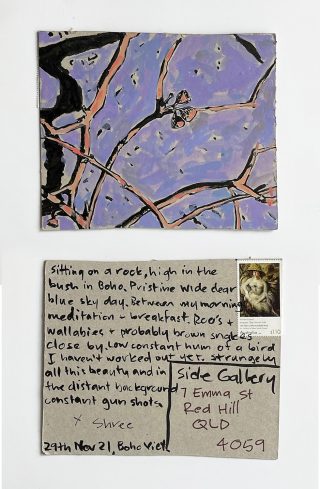 Sitting on a rock, high in the
bush in Boho. Pristine wide clear
blue sky day. Between my morning
meditation + breakfast. Roo's +
wallabies + probably brown snakes
close by. Low constant hum of a bird
I haven't worked out yet. Strangely
all this beauty and in
the distant background
constant gun shots.
x Shree
29th Nov 21, Boho Vic
Side Gallery
7 Emma St
Red Hill
QLD
4059
$1.10